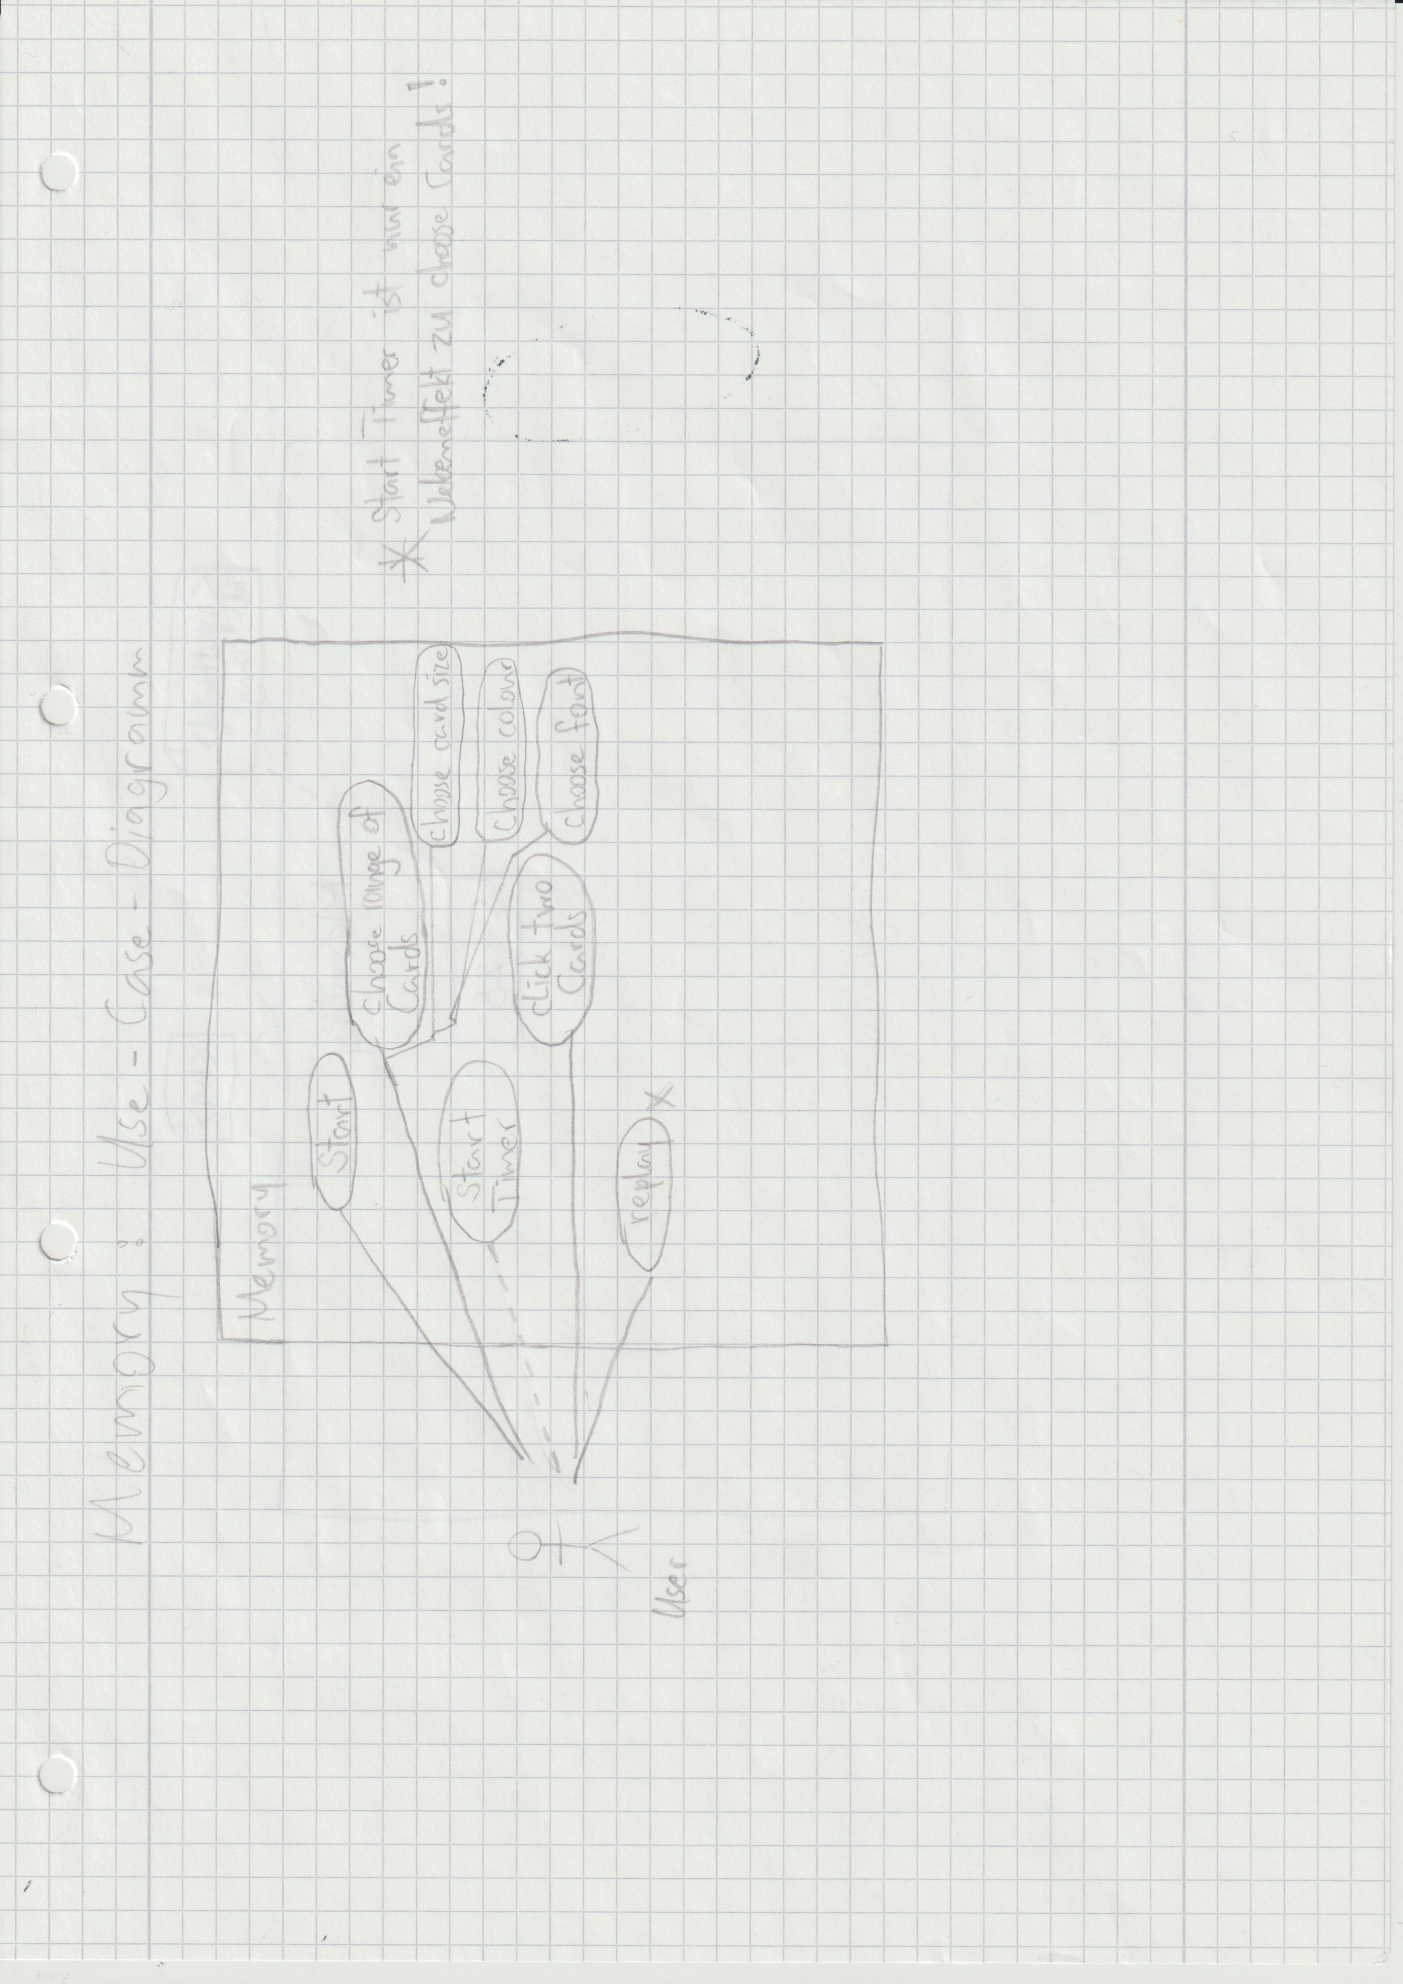 Memory: Use-Case-Diagramm
Memory
Start
Choose range of
Cards
choose card size
Choose colour
Choose font
Start
Timer
click two
Cards
replay
User
* Start Timer ist nur ein
Nebeneffekt zu choose Cards!